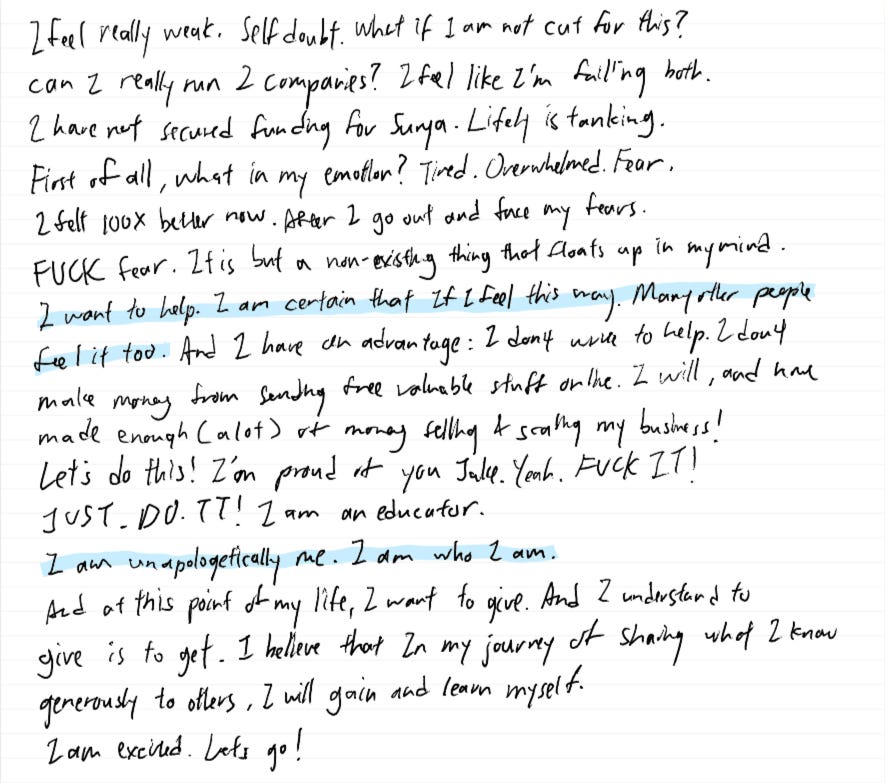 I feel really weak. Self doubt. What if I am not cut for this?
can I really run 2 companies? I feel like I'm failing both.
I have not secured funding for Sunya. Lifely is tanking.
First of all, what in my emotion? Tired. Overwhelmed. Fear.
I felt 100X better now. After I go out and face my fears.
FUCK fear. It is but a non-existing thing that floats up in my mind.
I want to help. I am certain that If I feel this way. Many other people
feel it too. And I have an advantage: I don't write to help. I don't
make money from sending free valuable stuff online. I will, and have
made enough (a lot) of money selling & scaling my business!
Let's do this! I'm proud of you Jake. Yeah. FUCK IT!
JUST. DO. IT! I am an educator.
I am unapologetically me. I am who I am.
And at this point of my life, I want to give. And I understand to
give is to get. I believe that In my journey of sharing what I know
generously to others, I will gain and learn myself.
I am excited. Lets go!